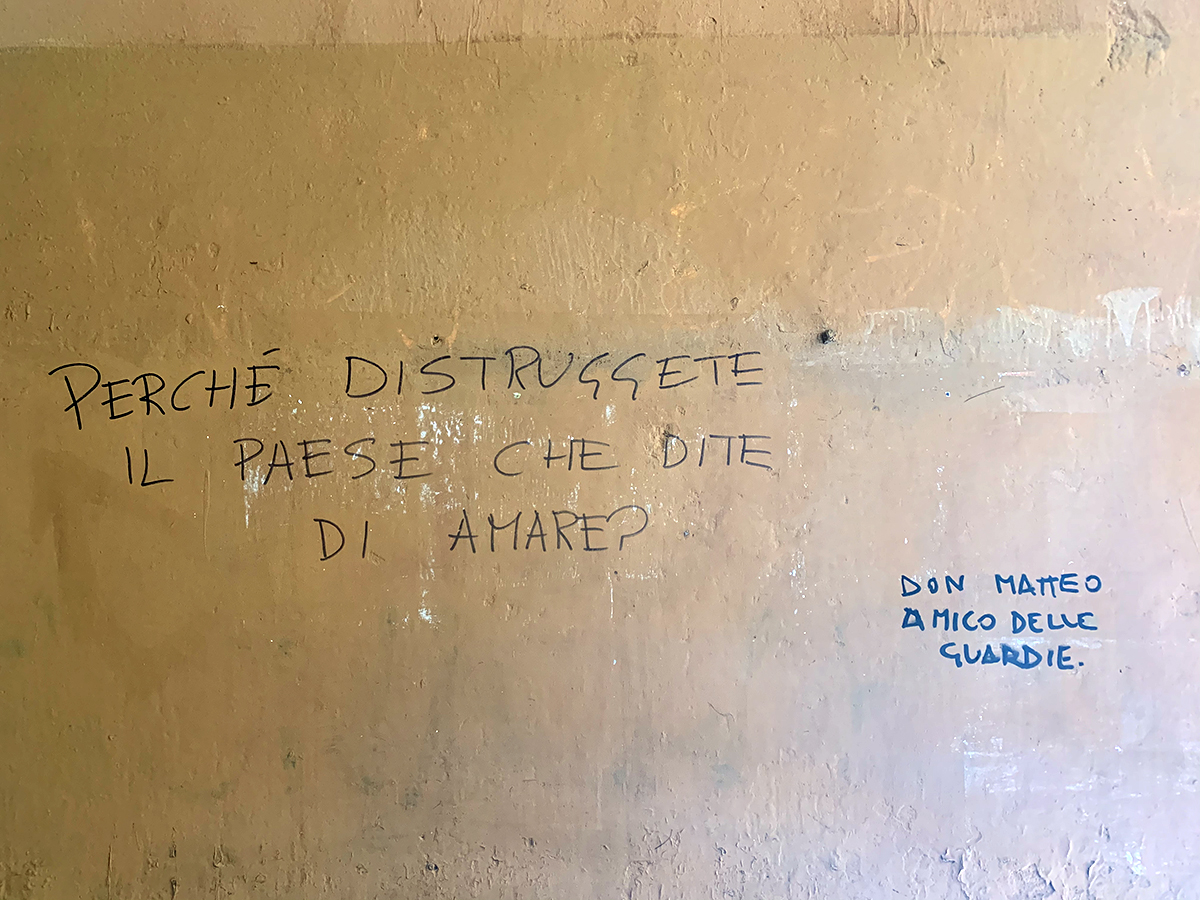 PERCHÉ DISTRUGGETE
IL PAESE CHE DITE
DI AMARE?
DON MATTEO
AMICO DELLE
GUARDIE.